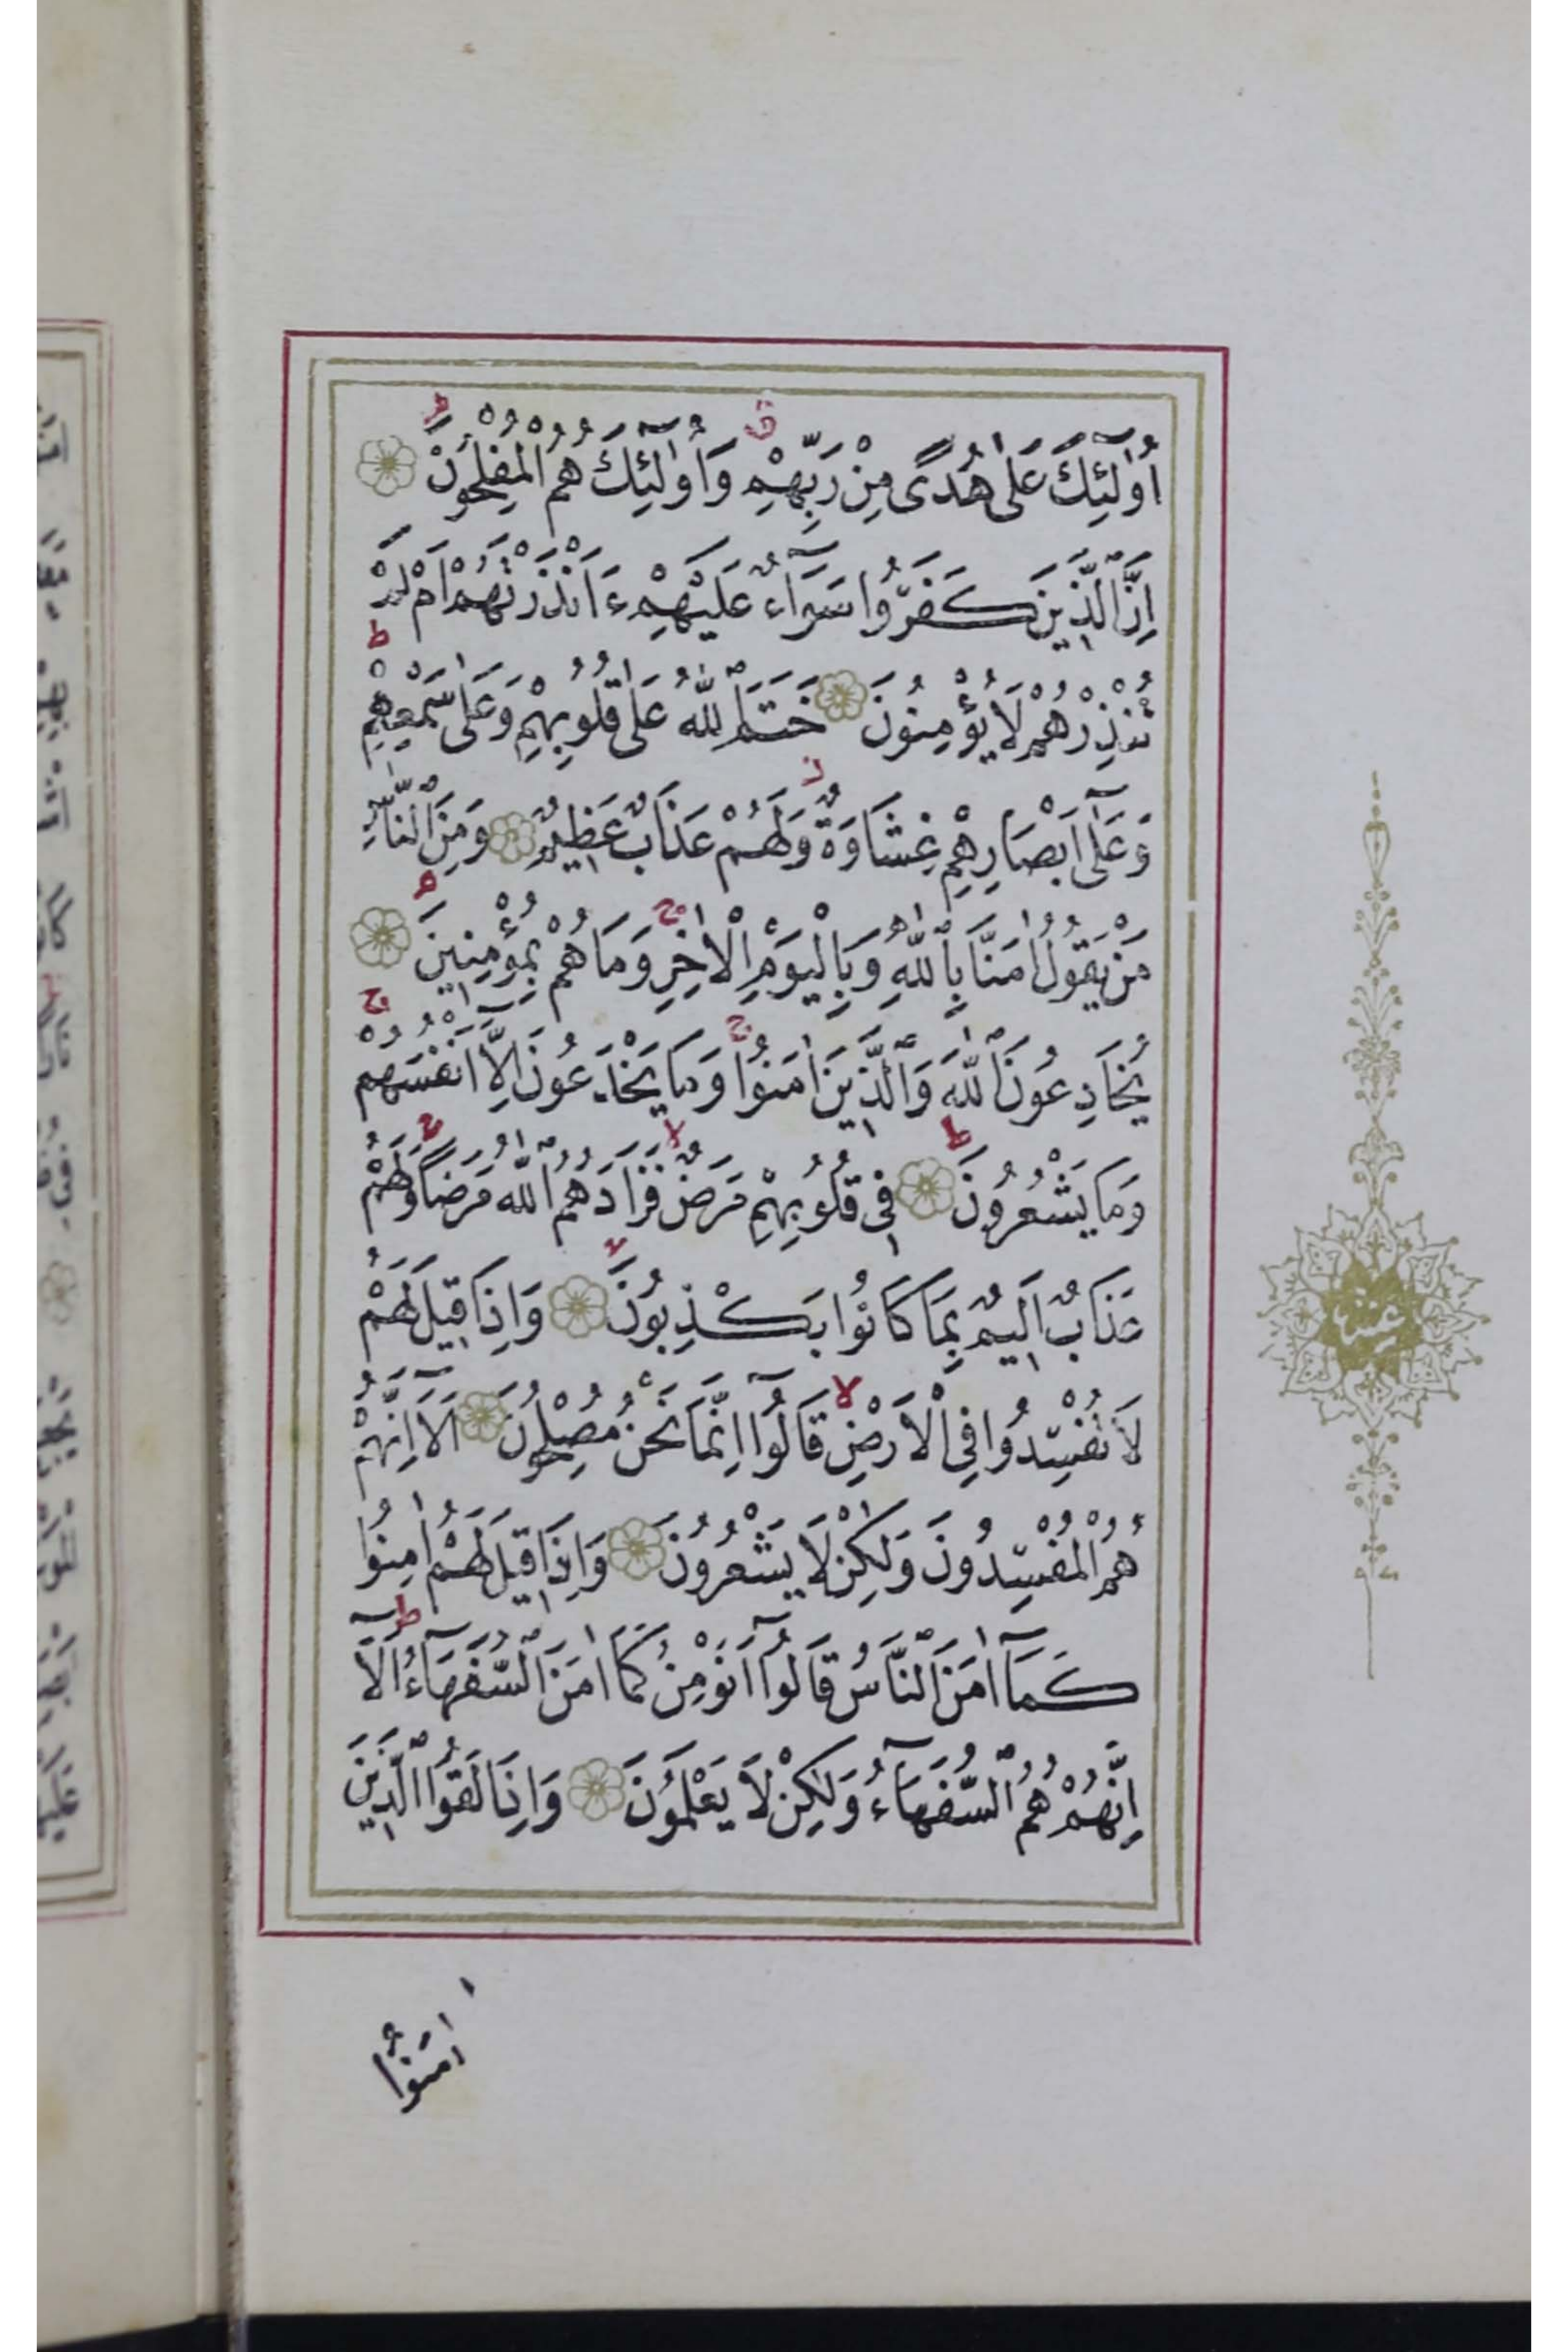 اُولٰٓئِكَ عَلٰى هُدًى مِنْ رَبِّهِمْ وَاُولٰٓئِكَ هُمُ الْمُفْلِحُونَ
اِنَّ الَّذِينَ كَفَرُوا سَوَٓاءٌ عَلَيْهِمْ ءَاَنْذَرْتَهُمْ اَمْ لَمْ
تُنْذِرْهُمْ لَا يُؤْمِنُونَ خَتَمَ اللّٰهُ عَلٰى قُلُوبِهِمْ وَعَلٰى سَمْعِهِمْ
وَعَلٰٓى اَبْصَارِهِمْ غِشَاوَةٌ وَلَهُمْ عَذَابٌ عَظِيمٌ وَمِنَ النَّاسِ
مَنْ يَقُولُ اٰمَنَّا بِاللّٰهِ وَبِالْيَوْمِ الْاٰخِرِ وَمَا هُمْ بِمُؤْمِنِينَ
يُخَادِعُونَ اللّٰهَ وَالَّذِينَ اٰمَنُوا وَمَا يَخْدَعُونَ اِلَّٓا اَنْفُسَهُمْ
وَمَا يَشْعُرُونَ فِى قُلُوبِهِمْ مَرَضٌ فَزَادَهُمُ اللّٰهُ مَرَضًا وَلَهُمْ
عَذَابٌ اَلِيمٌ بِمَا كَانُوا يَكْذِبُونَ وَاِذَا قِيلَ لَهُمْ
لَا تُفْسِدُوا فِى الْاَرْضِ قَالُٓوا اِنَّمَا نَحْنُ مُصْلِحُونَ اَلَٓا اِنَّهُمْ
هُمُ الْمُفْسِدُونَ وَلٰكِنْ لَا يَشْعُرُونَ وَاِذَا قِيلَ لَهُمْ اٰمِنُوا
كَمَٓا اٰمَنَ النَّاسُ قَالُٓوا اَنُؤْمِنُ كَمَٓا اٰمَنَ السُّفَهَٓاءُ اَلَٓا
اِنَّهُمْ هُمُ السُّفَهَٓاءُ وَلٰكِنْ لَا يَعْلَمُونَ وَاِذَا لَقُوا الَّذِينَ
اٰمَنُوا